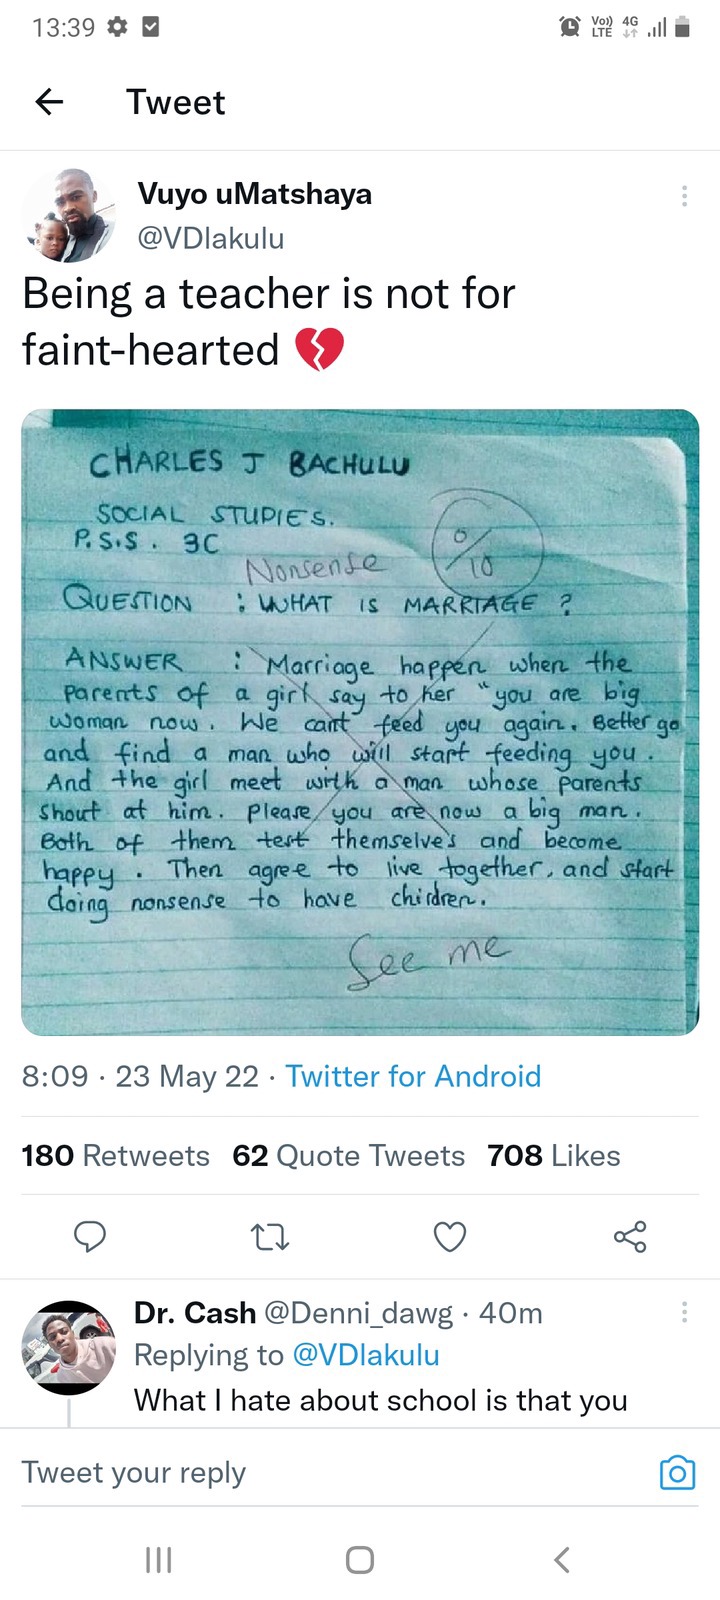 13:39
Vo)) LTE 4G
Tweet
Vuyo uMatshaya
@VDlakulu
Being a teacher is not for
faint-hearted 💔
CHARLES J BACHULU
SOCIAL STUDIES.
P.S.S. 3C
0/10
Nonsense
QUESTION : WHAT IS MARRIAGE ?
ANSWER : Marriage happen when the
parents of a girl say to her "you are big
woman now. We cant feed you again. Better go
and find a man who will start feeding you.
And the girl meet with a man whose parents
shout at him. Please you are now a big man.
Both of them test themselve's and become
happy. Then agree to live together, and start
doing nonsense to have chirdren.
See me
8:09 · 23 May 22 · Twitter for Android
180 Retweets 62 Quote Tweets 708 Likes
Dr. Cash @Denni_dawg · 40m
Replying to @VDlakulu
What I hate about school is that you
Tweet your reply